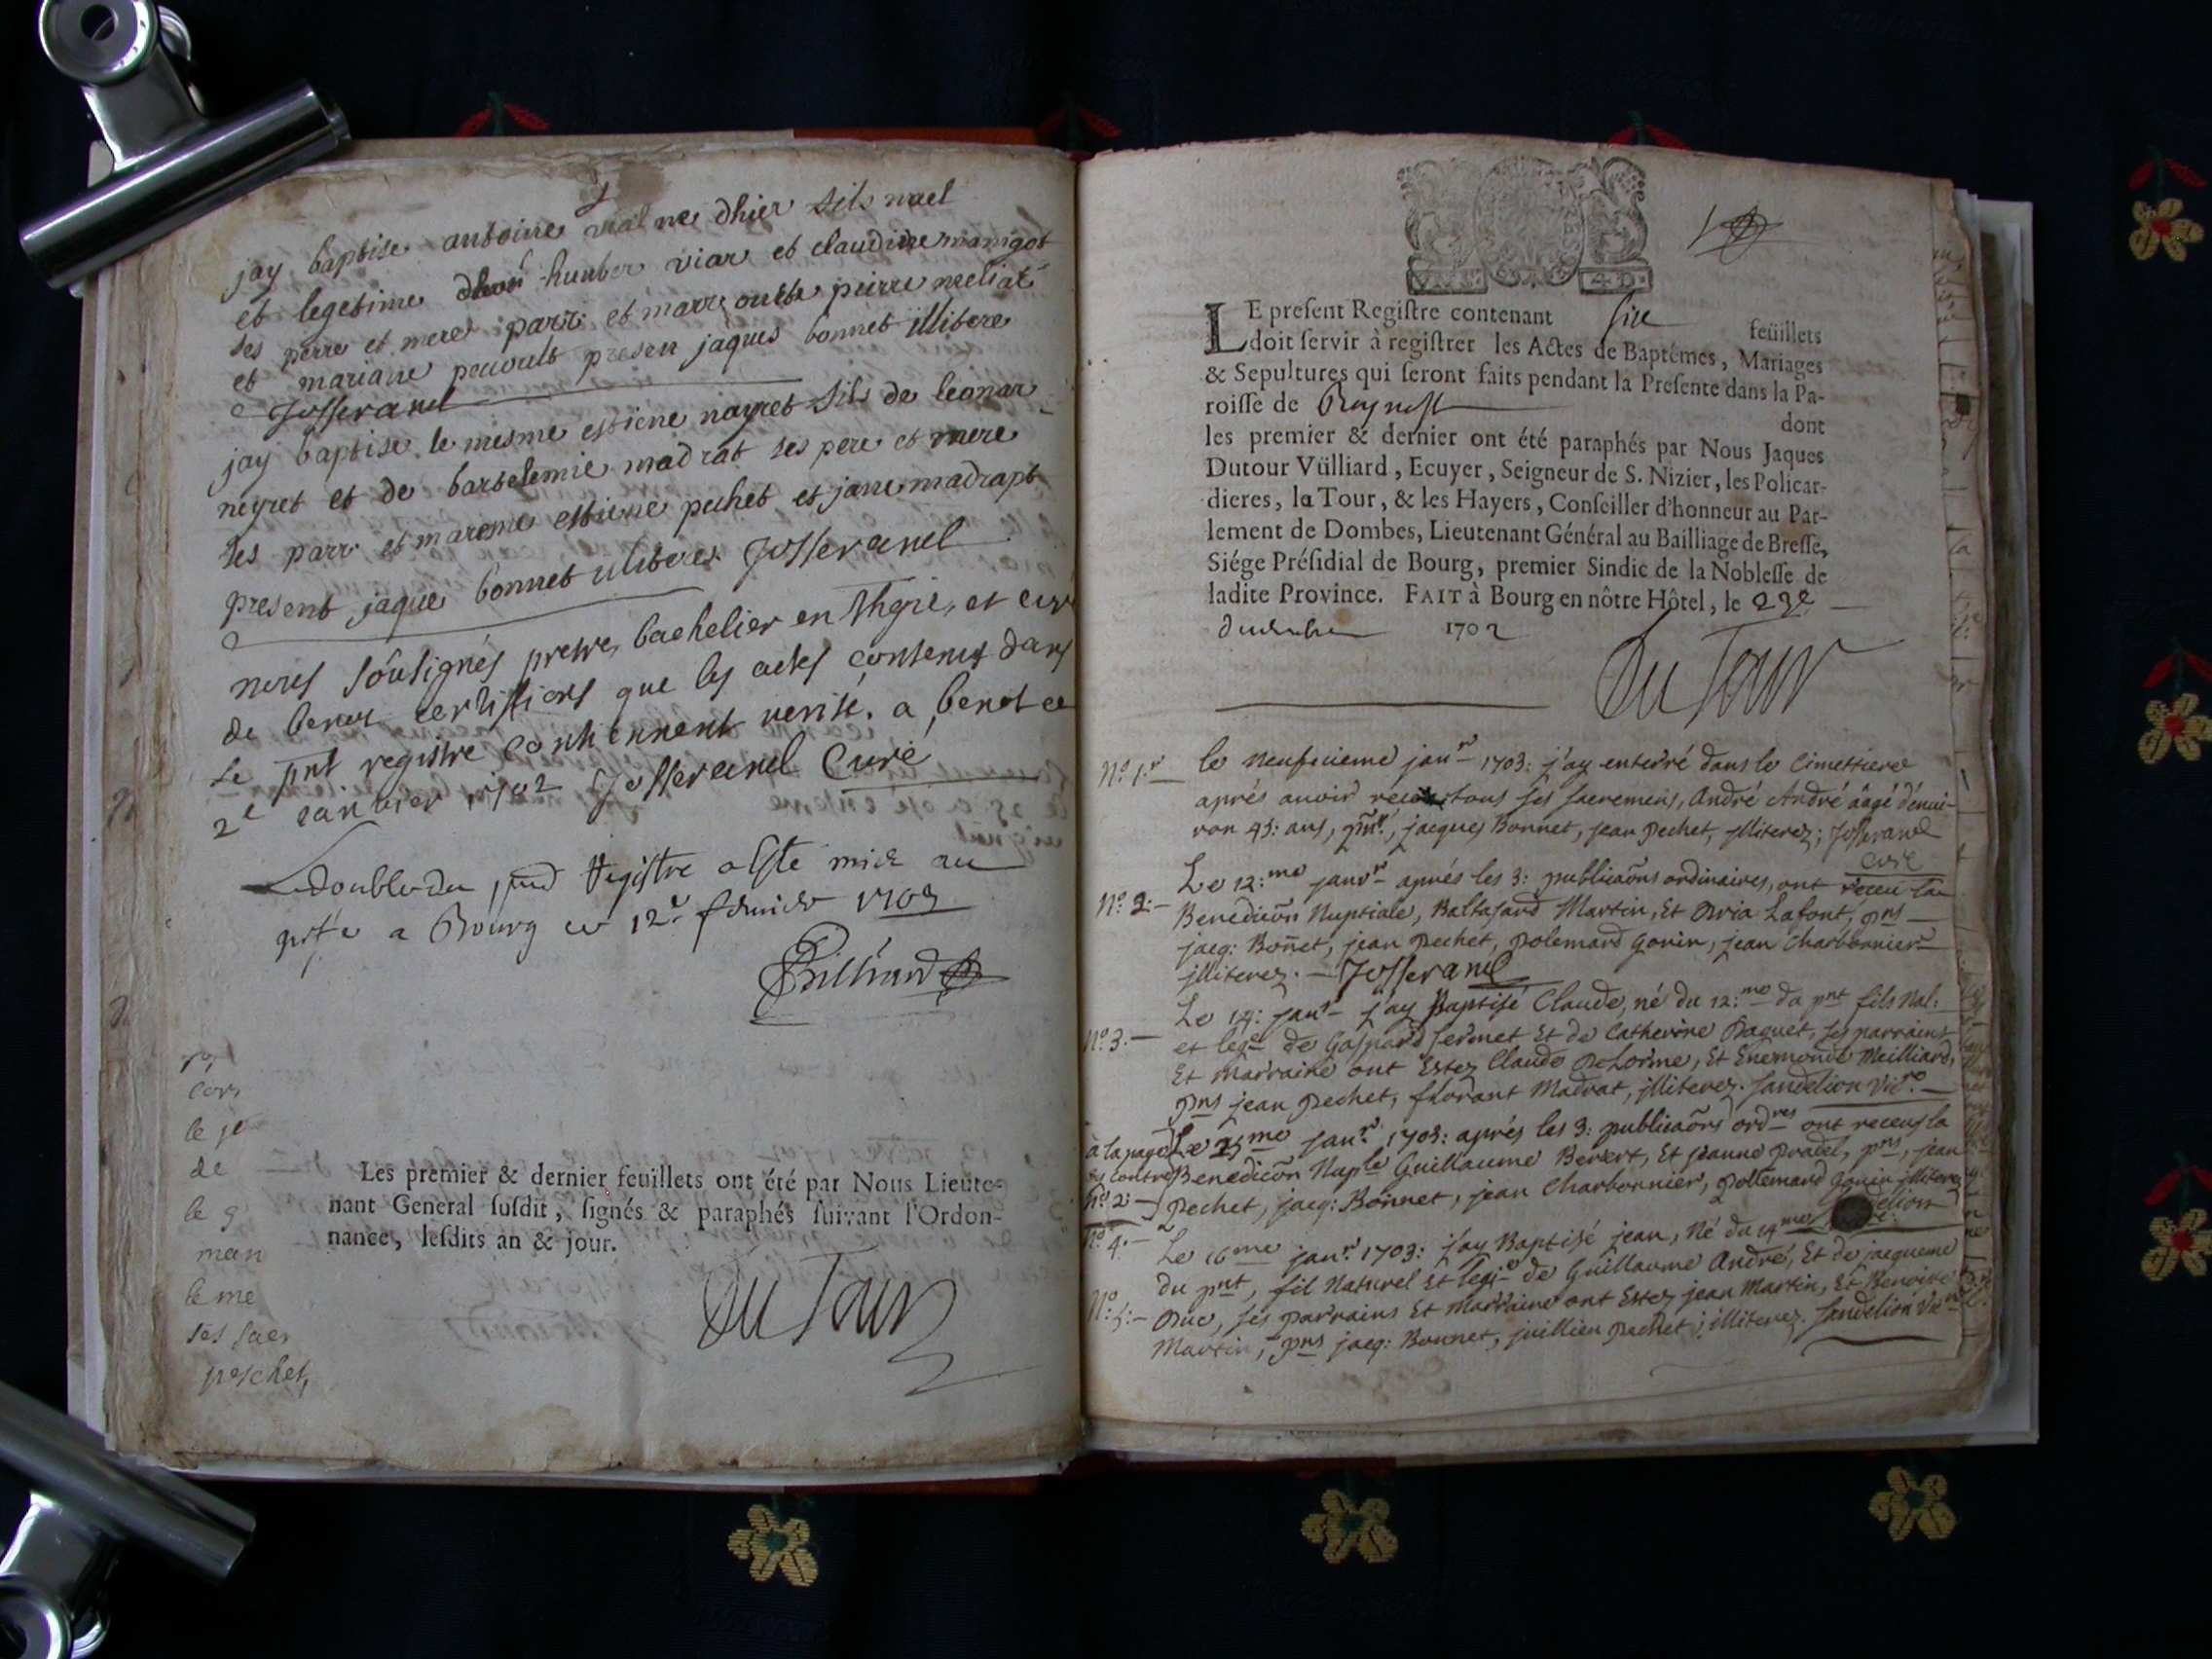 jay baptise antoine vial ne dhier fils nael
et legetime dhon hunber viar et claudine manigot
ses perre et mere parr et marr ouste peirre meliat
et mariane peuoult presen jaques bonnet illitere
Josserand
jay baptise le mesme estiene nayret fils de leonar
neyret et de bartelemie madrat ses pere et mere
ses parr et mareme estiene pechet et jane madrapt
present jaque bonnet iliteres Josserand
nous sousignés prestre, bachelier en thgie, et curé
de benot certiffions que les actes contenus dans
le pnt registre contiennent verité. a benot ce
2e janvier 1702 Josserand Curé
double du pnd Registre a este mis au
a Bourg ce 12e 1703
le je
de
le g
man
le me
ses sacr
peschet,
Les premier & dernier feüillets ont été par Nous Lieute-
nant General susdit, signés & paraphés suivant l'Ordon-
nance, lesdits an & jour.
Du Tour
LE present Registre contenant six feüillets
doit servir à registrer les Actes de Baptêmes, Mariages
& Sepultures qui seront faits pendant la Presente dans la Pa-
roisse de dont
les premier & dernier ont été paraphés par Nous Jaques
Dutour Vülliard, Ecuyer, Seigneur de S. Nizier, les Policar-
dieres, la Tour, & les Hayers, Conseiller d'honneur au Par-
lement de Dombes, Lieutenant Général au Bailliage de Bresse,
Siége Présidial de Bourg, premier Sindic de la Noblesse de
ladite Province. FAIT à Bourg en nôtre Hôtel, le 23e
1702
Du Tour
No. 1.r le neufvieme janr 1703: j'ay enterré dans le Cimettiere
aprés auoir receu tous ses sacremens, André André âagé d'enui-
ron 45: ans, pnts, jacques Bonnet, jean Pechet, jlliterez; Josserand
curé
No. 2.- Le 12:me janvr aprés les 3: publicaõns ordinaires, ont receu la
Benedicõn Nuptiale, Baltasard Martin, Et Pria Lafont, pns
jacq: Bonnet, jean Pechet, polemard Gonin, jean Charbonnier
jlliterez. - Josserand
No. 3.- Le 14: janr j'ay Baptisé Claude, né du 12:me du pnt fils Nal:
et lege de Gaspard sermet Et de Catherine Paquet, ses parrains
Et marraine ont Estez Claude DeLorme, Et Enemonde Meilliard,
pns jean Pechet, florant Madrat, illiterez. Sandelion Vicre
à la page cy contre no. 2.- Le 15me janr 1703: aprés les 3: publicaõns ordres ont receus la
Benedicõn Nuple Guillaume Berert, Et jeanne Pradel, pns, jean
Pechet, jacq: Bonnet, jean Charbonnier, pollemard Gonin jlliterez
No. 4.-
Le 16me janr 1703: j'ay Baptisé jean, Né du 14me
No. 5.- du pnt, fil Naturel Et legie de Guillaume André, Et de jacqueme
Duc, ses parrains Et marraine ont Estez jean Martin, Et Benoite
Martin, pns jacq: Bonnet, juillien Pechet; illiterez. Sandelion Vicre